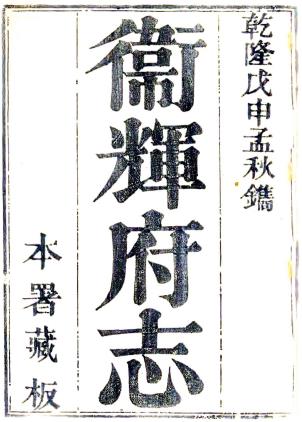 乾隆戊申孟秋鐫
衞輝府志
本署藏板